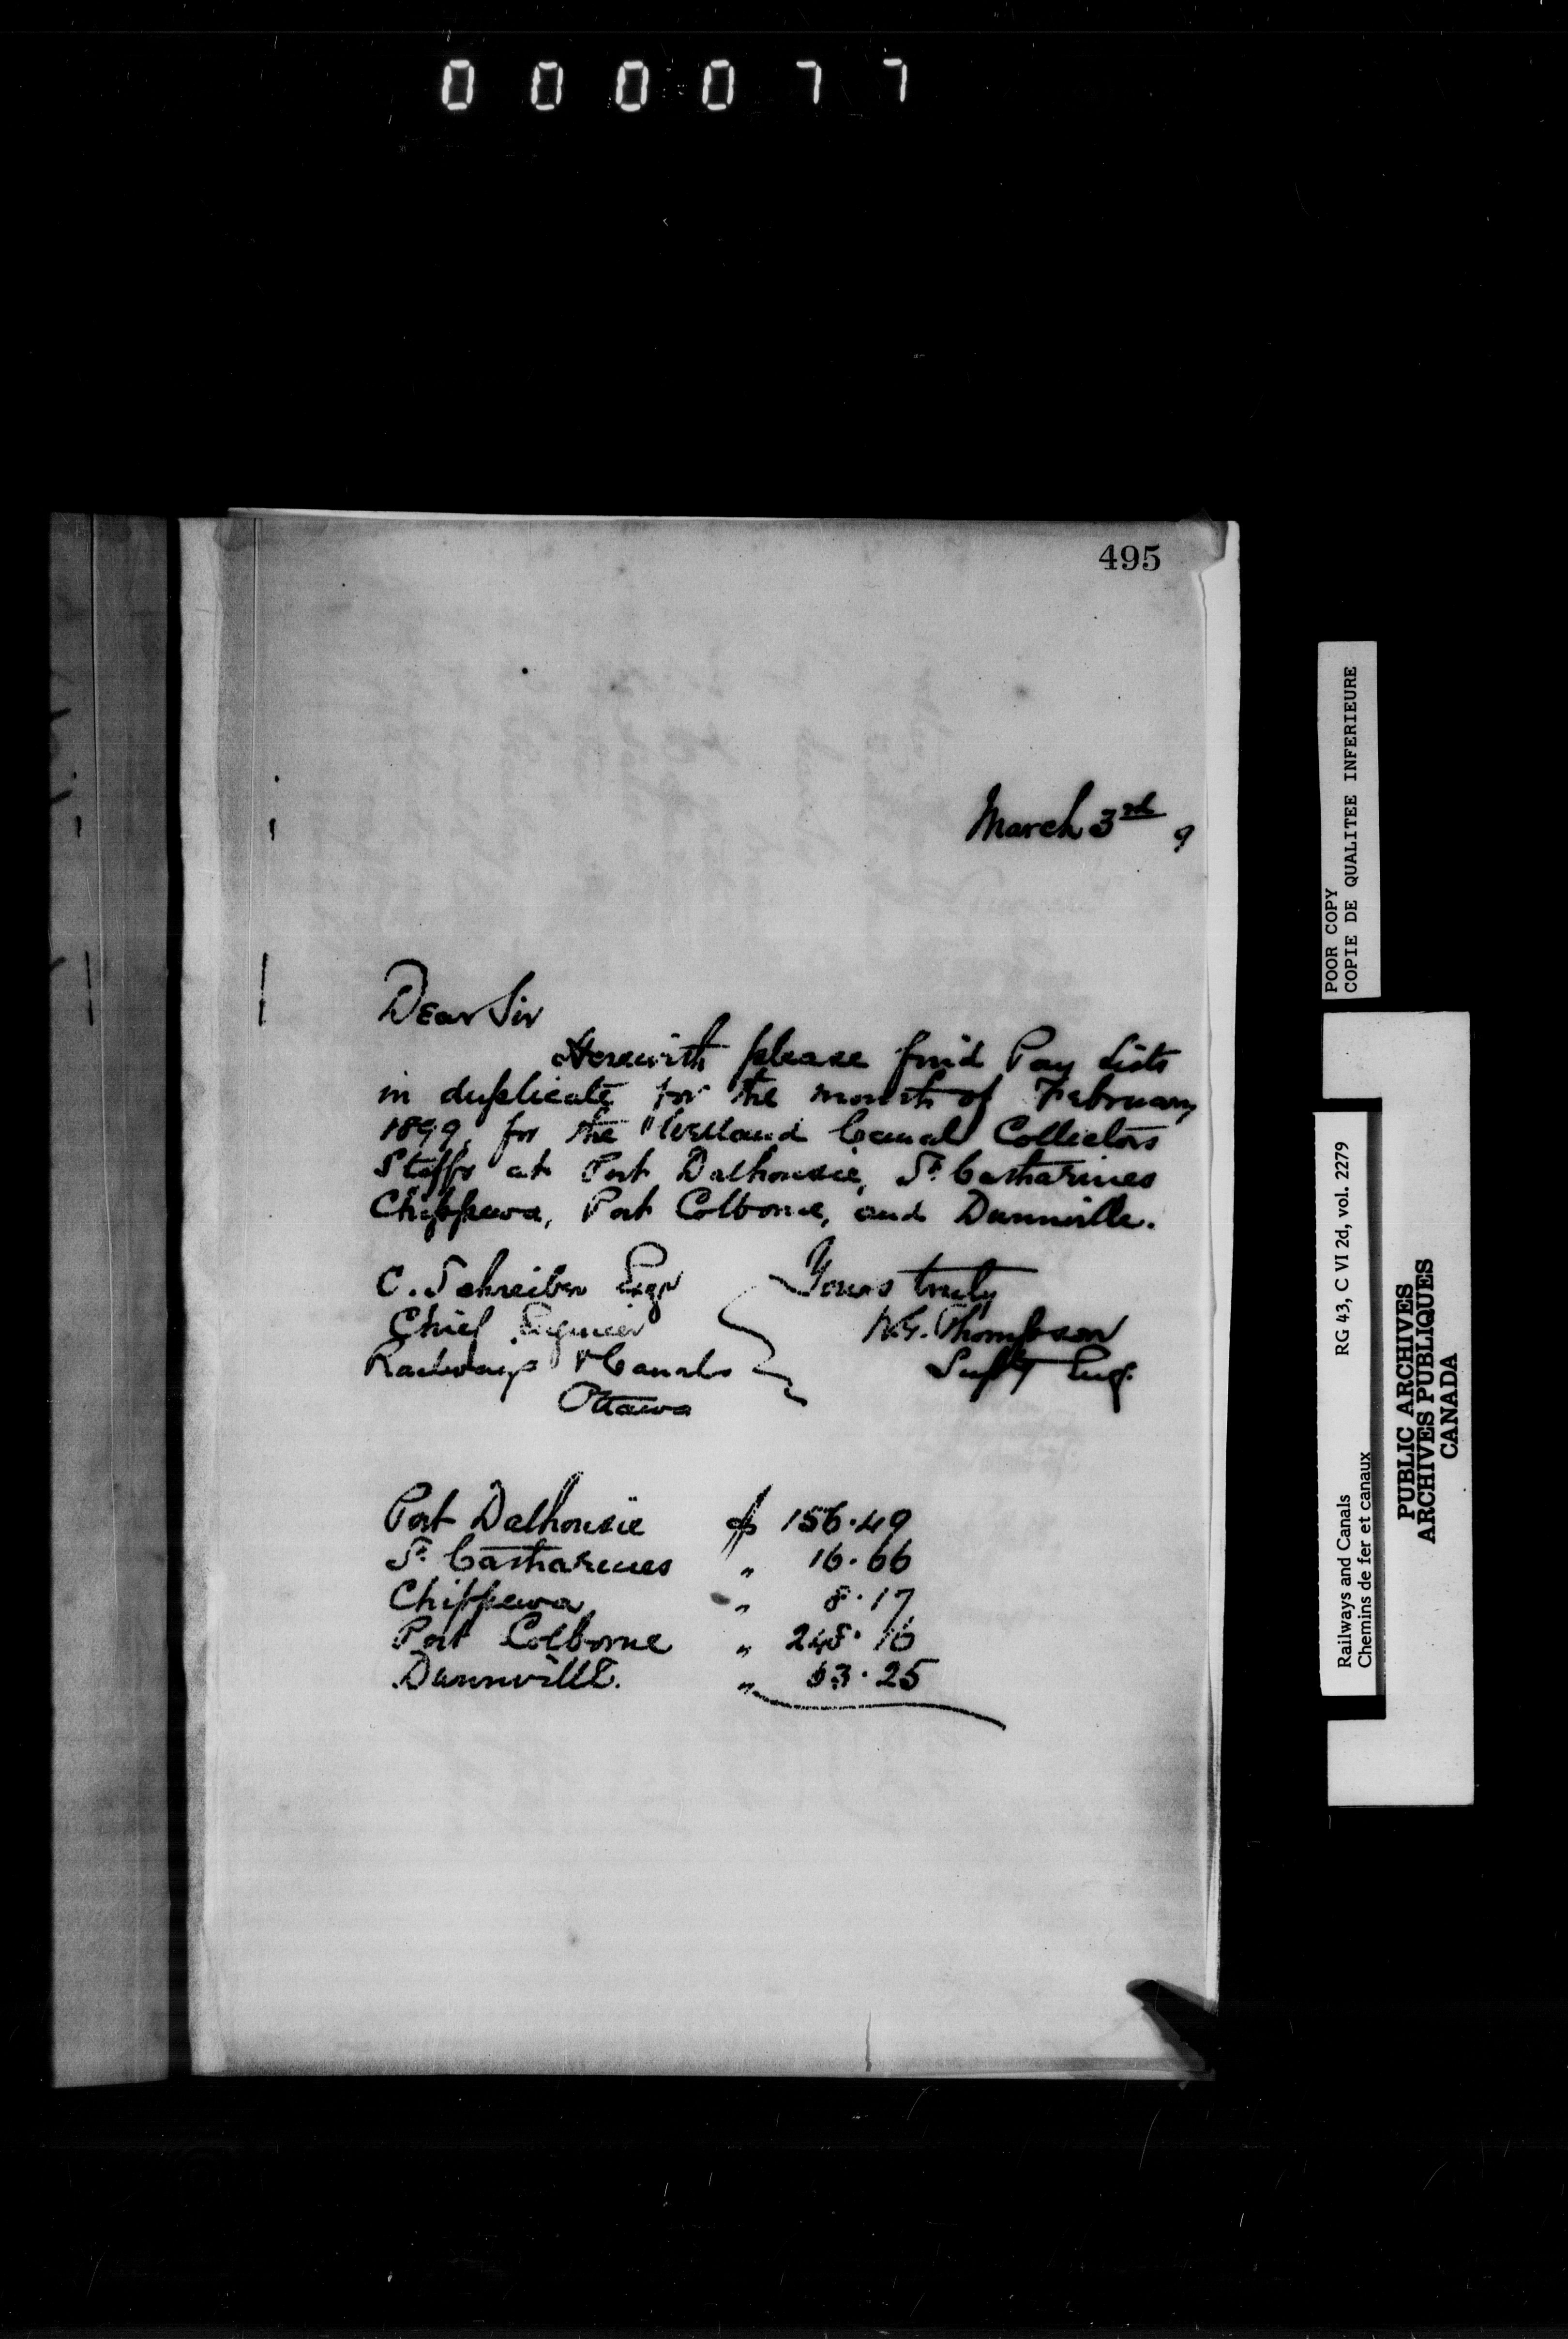 000077
495
March 3rd 9
Dear Sir
Herewith please find Pay Lists
in duplicate for the month of February
1899, for the Welland Canal Collectors
Staffs at Port Dalhousie, St. Catharines
Chippewa, Port Colborne, and Dunnville.
C. Schreiber Esqr
Chief Engineer
Railways & Canals
Ottawa
Yours truly
W.G. Thompson
Supt g Eng.
Port Dalhousie $ 156.49
St. Catharines " 16.66
Chippewa " 8.17
Port Colborne " 248.16
Dunnville. " 63.25
POOR COPY
COPIE DE QUALITEE INFERIEURE
Railways and Canals RG 43, C VI 2d, vol. 2279
Chemins de fer et canaux
PUBLIC ARCHIVES
ARCHIVES PUBLIQUES
CANADA